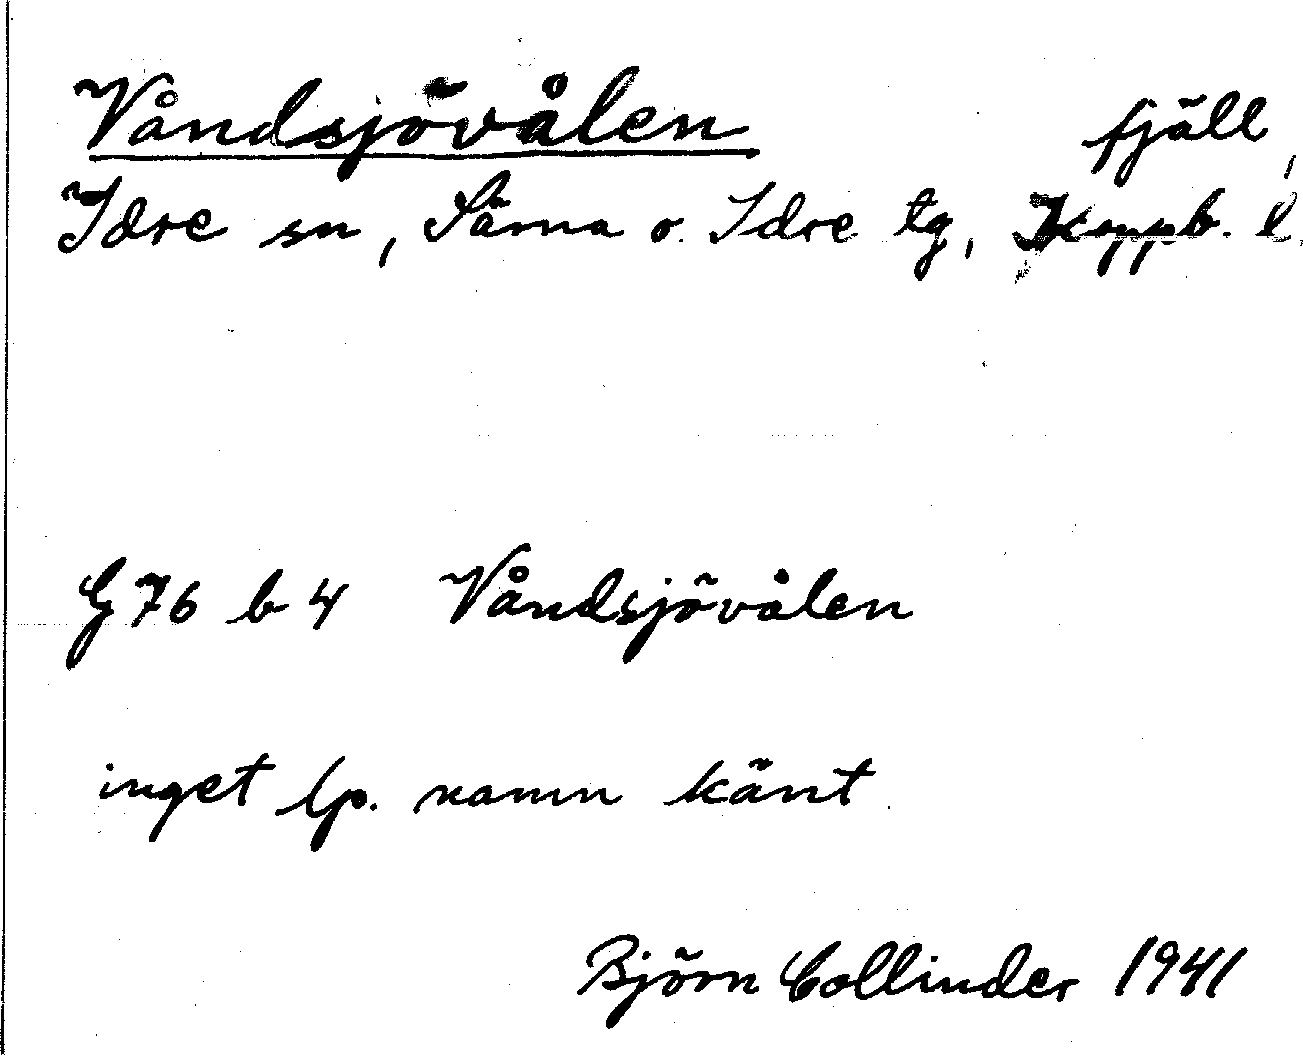 Våndsjövålen fjäll,
Idre sn, Särna o. Idre tg, Koppb. l.
G 76 b 4 Våndsjövålen
inget lp. namn känt
Björn Collinder 1941